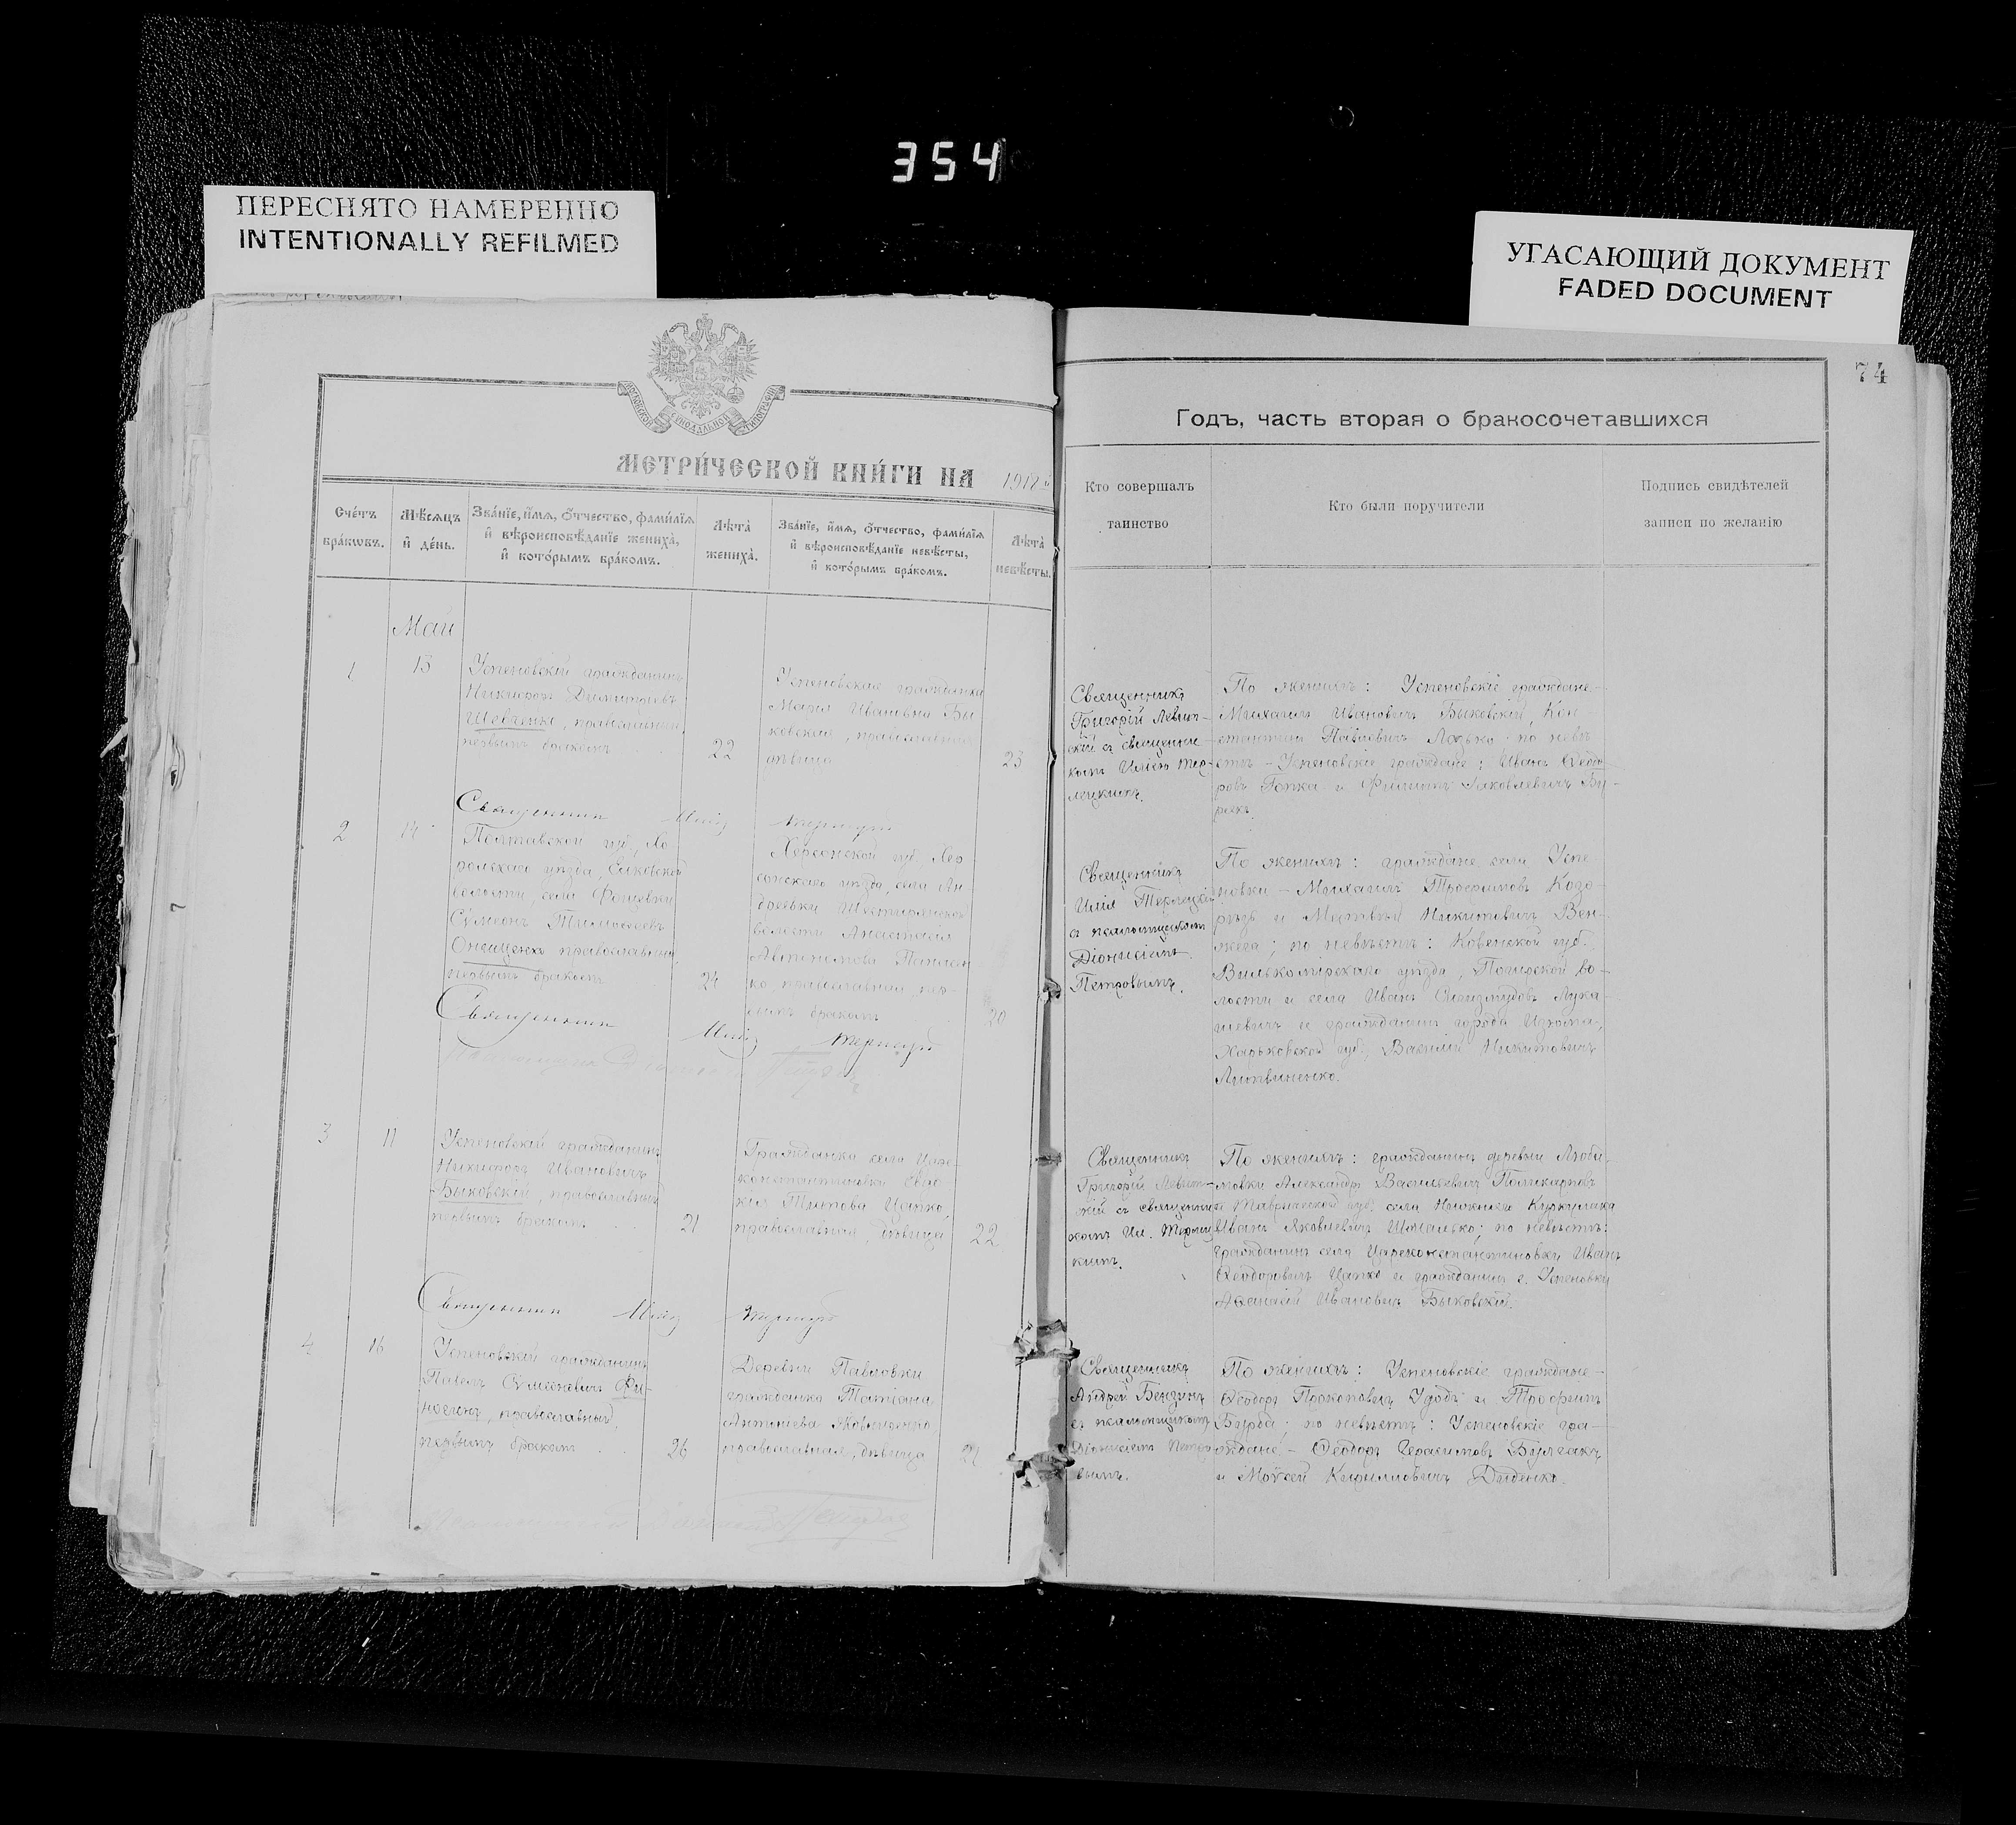 354
ПЕРЕСНЯТО НАМЕРЕННО
INTENTIONALLY REFILMED
УГАСАЮЩИЙ ДОКУМЕНТ
FADED DOCUMENT
74
МЕТРИ́ЧЕСКОЙ КНИ́ГИ НА
Годъ, часть вторая о бракосочетавшихся
Сче́тъ
бра́ковъ.
Мѣ́сяцъ
и де́нь.
Зва́нїе, и́мя, о́тчество, фами́лїя
и вѣроисповѣ́данїе жениха̀,
и кото́рымъ бра́комъ.
Лѣта̀
жениха̀.
Зва́нїе, и́мя, о́тчество, фами́лїя
и вѣроисповѣ́данїе невѣ́сты,
и кото́рымъ бра́комъ.
Лѣта̀
невѣ́сты.
Кто совершалъ
таинство
Кто были поручители
Подпись свидѣтелей
записи по желанію
Май
1
13
Успеновскій гражданинъ
Шевченко, православный,
первымъ бракомъ
22
Успеновская гражданка
Марія Ивановна Бы-
ковская, православная
дѣвица
23
Священникъ
Григорій Левит-
скій съ священни-
комъ Иліею Тер-
лецкимъ.
По женихѣ: Успеновскіе граждане-
Михаилъ Ивановичъ Быковскій, Кон-
стантинъ Павловичъ по невѣ-
стѣ - Успеновскіе граждане: Иванъ Ѳеодо-
ровъ и Филиппъ Яковлевичъ Бу-
Священникъ Илія
2
14
Полтавской губ., Хо-
рольскаго уѣзда,
волости, села
Сѵмеонъ Тимоѳеевъ
Онищенко православный
первымъ бракомъ
24
Херсонской губ. Хер-
сонскаго уѣзда, села Ан-
дреевки
волости Анастасія
Автономова
ко, православная, пер-
вымъ бракомъ
20
Священникъ
Илія Терлецкій
съ псаломщикомъ
Діонисіемъ
Петровымъ.
По женихѣ: граждане села Успе-
новки - Михаилъ Трофимовъ Козо-
рѣзъ и Матвѣй Никитовичъ Вен-
жега; по невѣстѣ: Ковенской губ.
Вилькомірскаго уѣзда, во-
лости и села Иванъ Лука-
шевичъ и гражданинъ города Изюма,
Харьковской губ., Василій Никитовичъ
Литвиненко.
Священникъ Илія
3
11
Успеновскій гражданинъ
Никифоръ Ивановичъ
Быковскій, православный
первымъ бракомъ
21
Гражданка села Царе-
константиновки Евдо-
кія Титова Цапко,
православная, дѣвица
22
Священникъ
Григорій Левит-
скій съ священни-
комъ Ил. Терлец-
кимъ.
По женихѣ: гражданинъ деревни Люби-
мовки Александръ Васильевичъ Поликарповъ
и Таврической губ. села Нижнаго Куркулака
Иванъ Яковлевичъ по невѣстѣ:
гражданинъ села Царехонстантиновки Иванъ
Ѳеодоровичъ Цапко и гражданинъ с. Успеновки
Аѳанасій Ивановичъ Быковскій.
Священникъ Илія
4
16
Успеновскій гражданинъ
Павелъ Сѵмеоновичъ
православный
первымъ бракомъ
26
Деревни Павловки
гражданка Татіана
Антоніева Яковченко
православная, дѣвица
21
Священникъ
Андрей Бензинъ
съ псаломщикомъ
Діонисіемъ Петро-
вымъ.
По женихѣ: Успеновскіе граждане-
Ѳеодоръ Прокоповичъ Удодъ и Трофимъ
Бурда; по невѣстѣ: Успеновскіе гра-
ждане - Ѳеодоръ Герасимовъ Булгакъ
и Моѵсей Кирилловичъ Диденко.